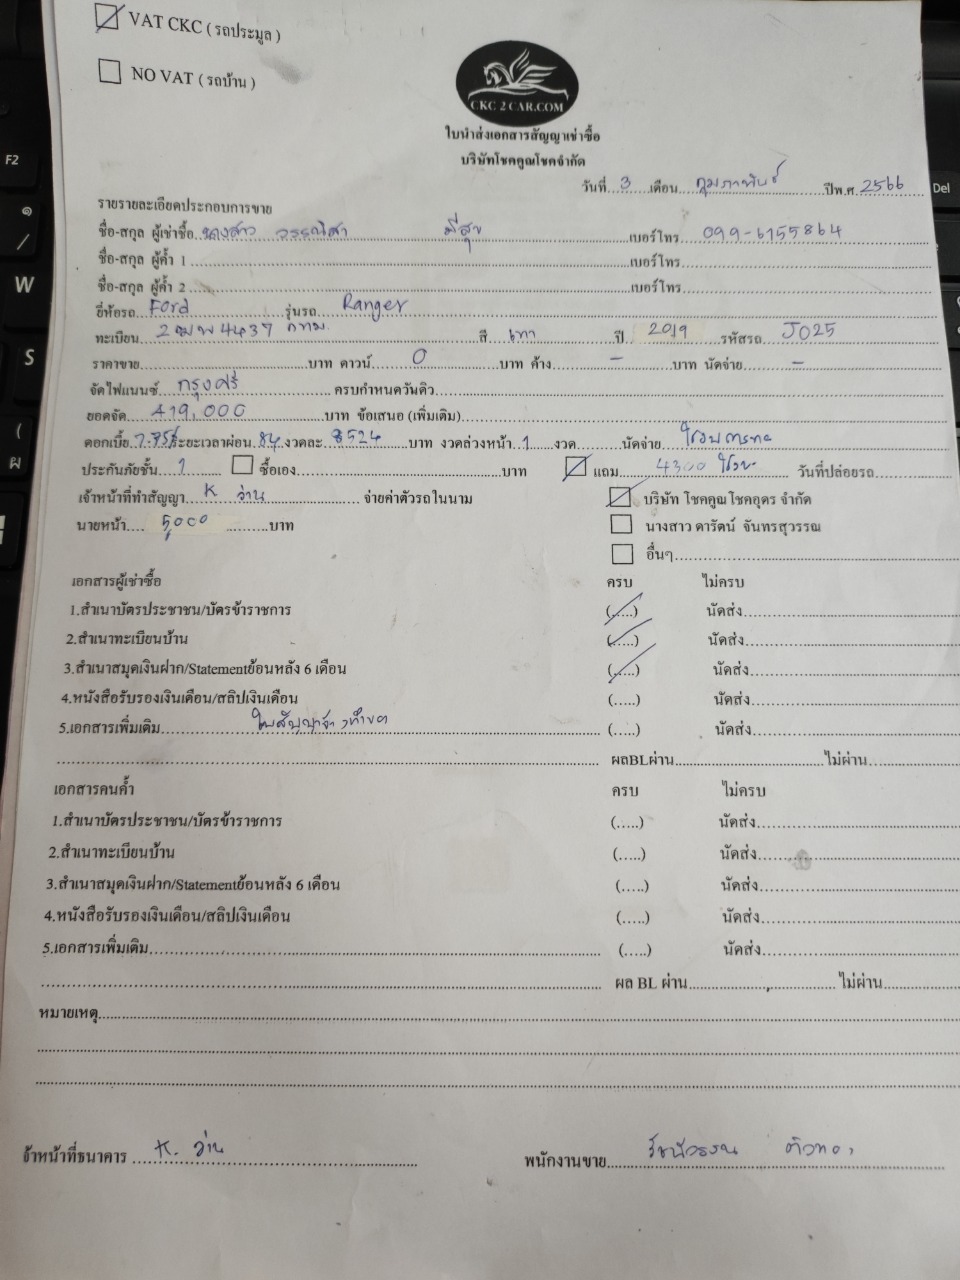 VAT CKC ( รถประมูล )
NO VAT ( รถบ้าน )
CKC 2 CAR.COM
ใบนำส่งเอกสารสัญญาเช่าซื้อ
บริษัทโชคคูณโชคจำกัด
วันที่ 3 เดือน กุมภาพันธ์ ปีพ.ศ. 2566
รายรายละเอียดประกอบการขาย
ชื่อ-สกุล ผู้เช่าซื้อ นางสาว วรรณิศา มีสุข เบอร์โทร 099-6155864
ชื่อ-สกุล ผู้ค้ำ 1 เบอร์โทร
ชื่อ-สกุล ผู้ค้ำ 2 เบอร์โทร
ยี่ห้อรถ Ford รุ่นรถ Ranger
ทะเบียน 2ฒพ 4437 กทม. สี เทา ปี 2019 รหัสรถ J025
ราคาขาย บาท ดาวน์ 0 บาท ค้าง - บาท นัดจ่าย -
จัดไฟแนนซ์ กรุงศรี ครบกำหนดวันดิว
ยอดจัด 419,000 บาท ข้อเสนอ (เพิ่มเติม)
ดอกเบี้ย ระยะเวลาผ่อน 84 งวดละ 8524 บาท งวดล่วงหน้า 1 งวด นัดจ่าย
ประกันภัยชั้น 1 ซื้อเอง บาท แถม 4300 วันที่ปล่อยรถ
เจ้าหน้าที่ทำสัญญา K ว่าน จ่ายค่าตัวรถในนาม บริษัท โชคคูณโชคอุดร จำกัด
นายหน้า 5000 บาท นางสาว ดารัตน์ จันทรสุวรรณ
อื่นๆ
เอกสารผู้เช่าซื้อ ครบ ไม่ครบ
1.สำเนาบัตรประชาชน/บัตรข้าราชการ (.....) นัดส่ง
2.สำเนาทะเบียนบ้าน (.....) นัดส่ง
3.สำเนาสมุดเงินฝาก/Statementย้อนหลัง 6 เดือน (.....) นัดส่ง
4.หนังสือรับรองเงินเดือน/สลิปเงินเดือน (.....) นัดส่ง
5.เอกสารเพิ่มเติม (.....) นัดส่ง
ผลBLผ่าน ไม่ผ่าน
เอกสารคนค้ำ ครบ ไม่ครบ
1.สำเนาบัตรประชาชน/บัตรข้าราชการ (.....) นัดส่ง
2.สำเนาทะเบียนบ้าน (.....) นัดส่ง
3.สำเนาสมุดเงินฝาก/Statementย้อนหลัง 6 เดือน (.....) นัดส่ง
4.หนังสือรับรองเงินเดือน/สลิปเงินเดือน (.....) นัดส่ง
5.เอกสารเพิ่มเติม (.....) นัดส่ง
ผล BL ผ่าน ไม่ผ่าน
หมายเหตุ
จ้าหน้าที่ธนาคาร K. ว่าน พนักงานขาย
F2
W
S
Del